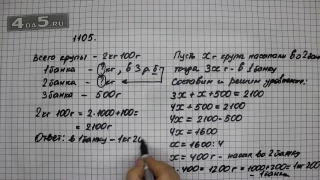 4DA5.RU
1105.
Всего крупы - 2кг 100г
1 банка - ? кг, в 3 р Б
2 банка - ? кг
3 банка - 500г
2кг 100г = 2·1000+100=
= 2100г
Ответ: в 1 банку - 1кг 2
Пусть x г крупа насыпали во 2 банк
тогда 3x г - в 1 банку
Составим и решим уравнение:
3x + x + 500 = 2100
4x + 500 = 2100
4x = 2100 - 500
4x = 1600
x = 1600 : 4
x = 400г - насып во 2 банку
·400 = 1200г = 1000+200 = 1кг 200г
1 банка